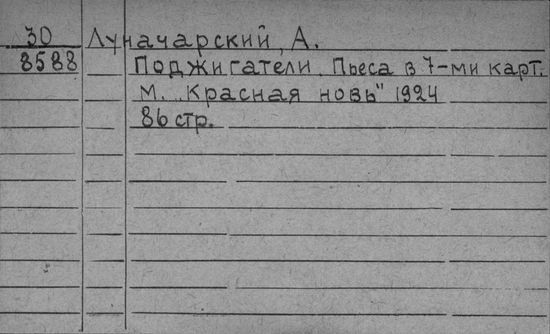 30 Луначарский, А.
8588 Поджигатели. Пьеса в 7-ми карт.
М. „Красная новь" 1924
86 стр.